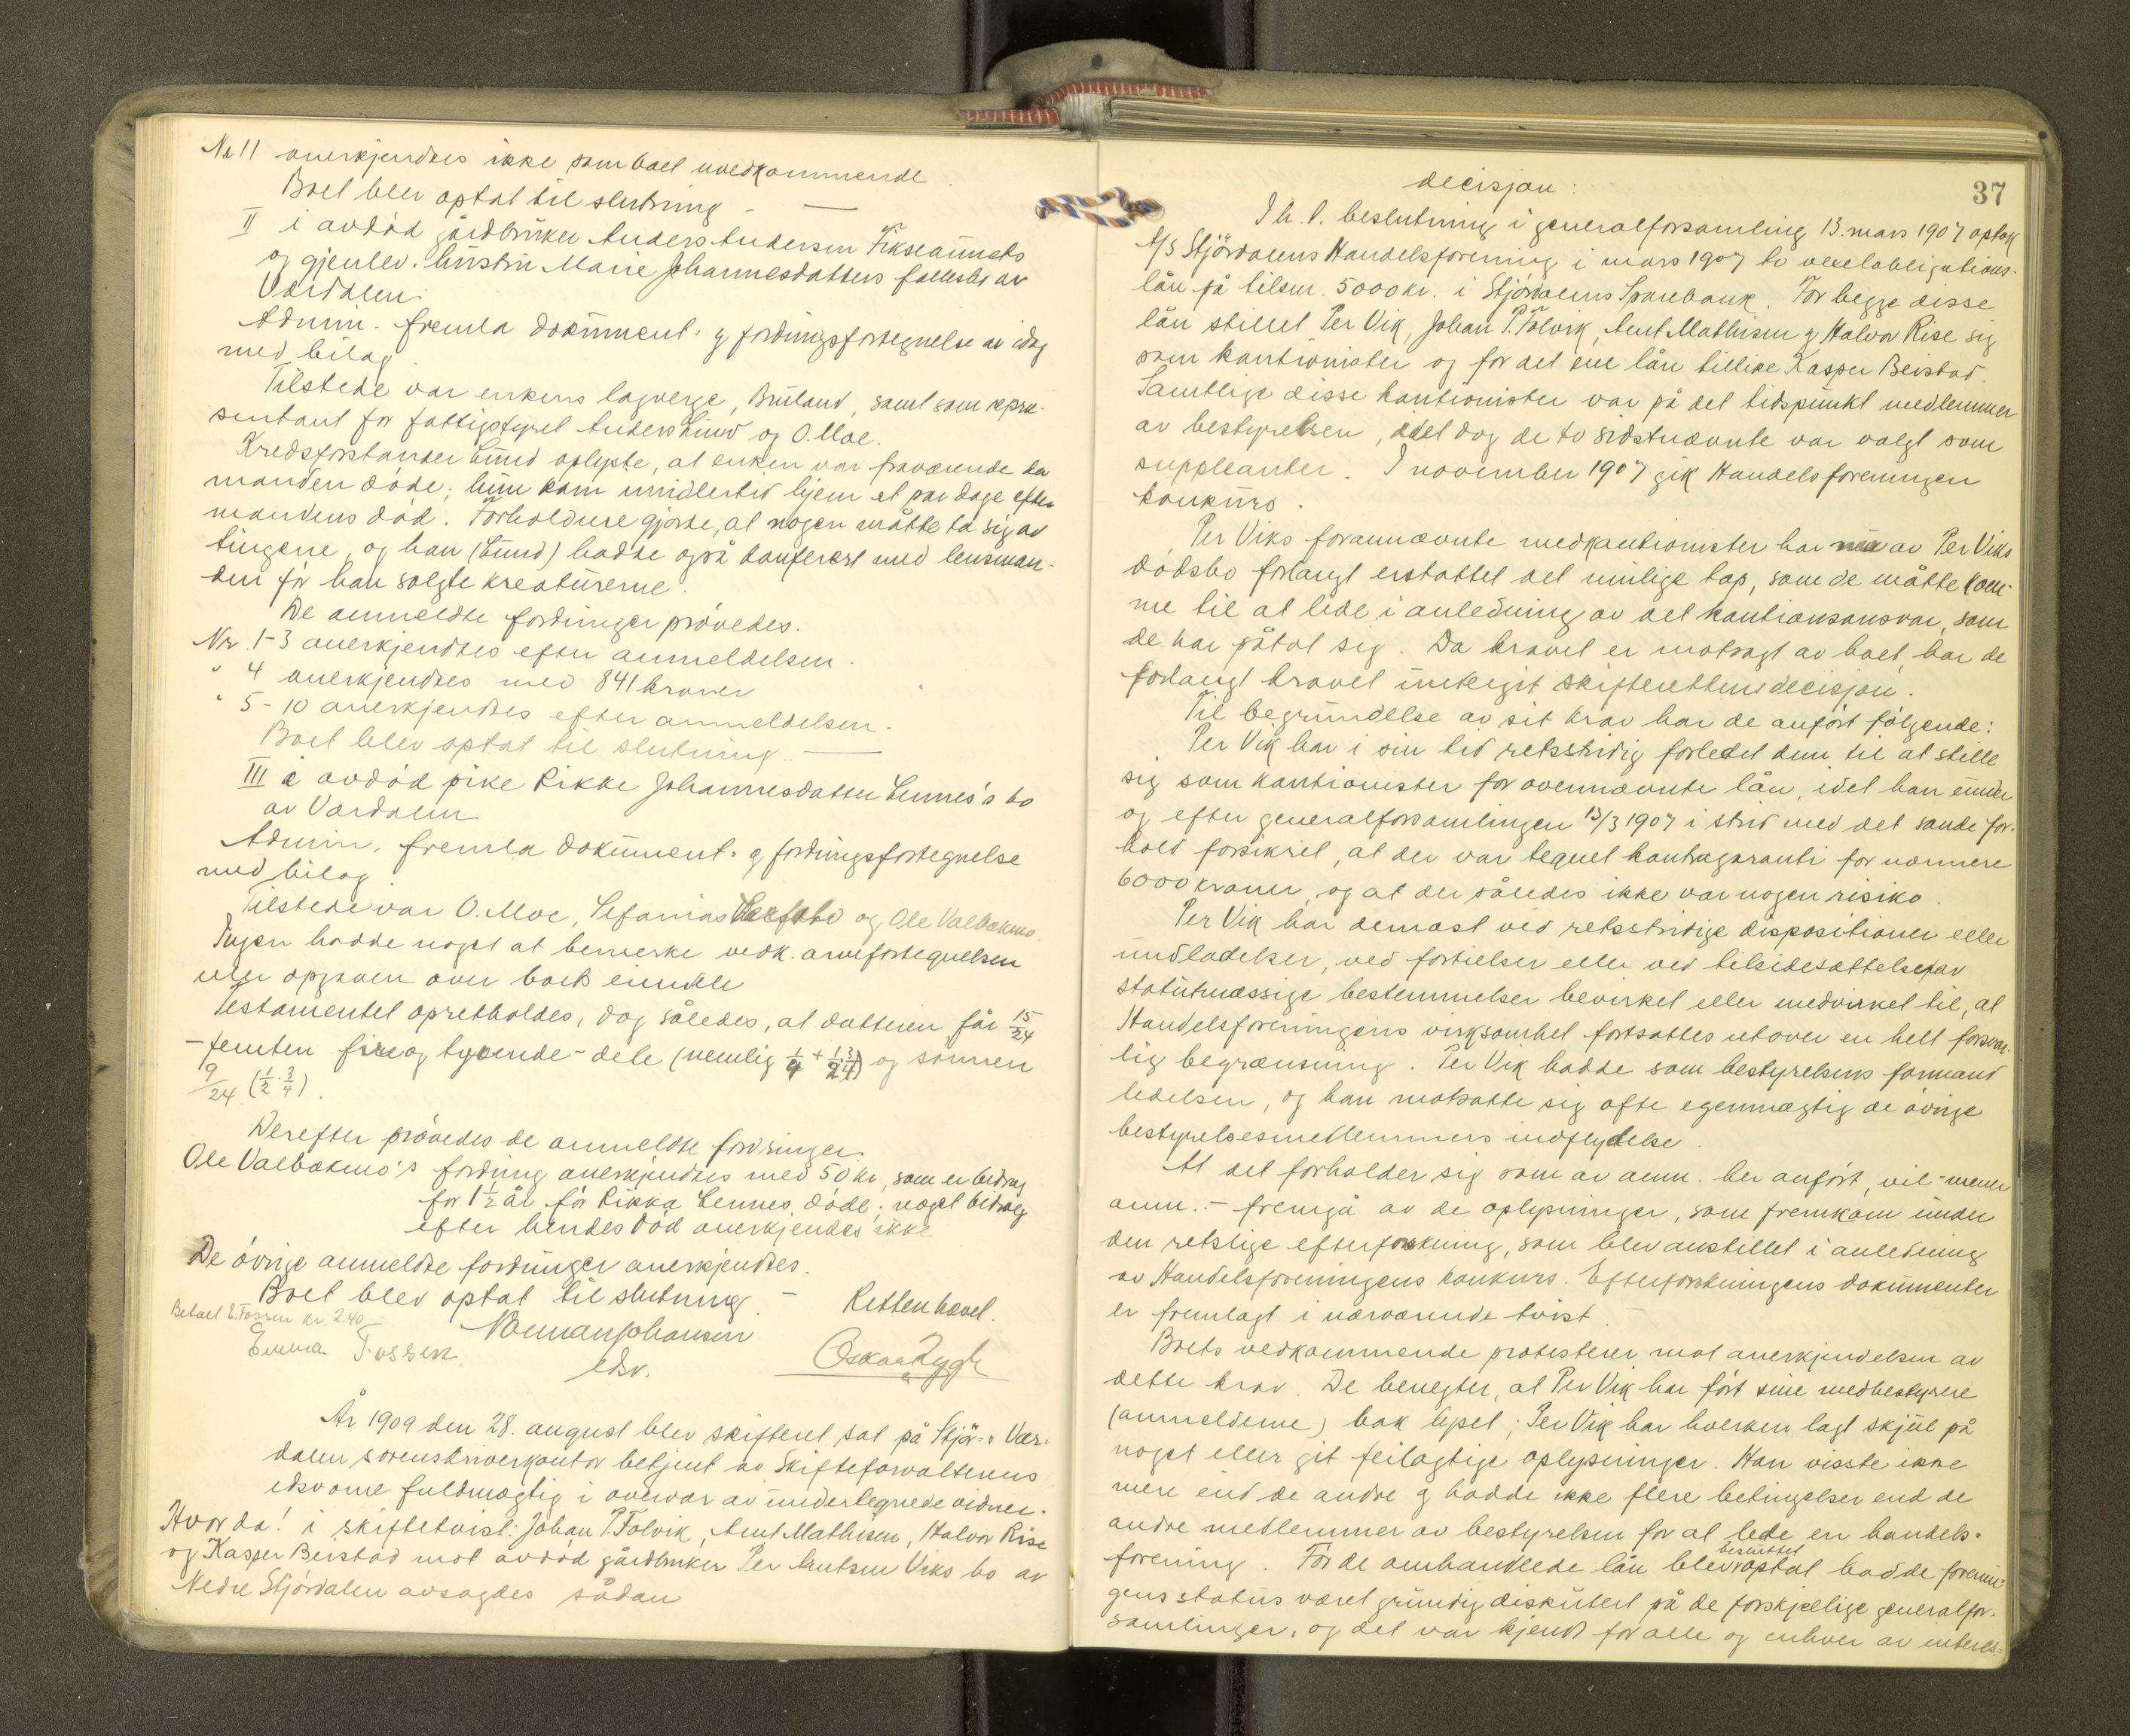 No 11 anerkjendtes ikke som boet uvedkommende.
Boet blev optat til slutning. —
II i avdød gårdbruker Anders Andersen Fikseaunets
og gjenlev. hustru Marie Johannesdatters fællesbo av
Værdalen.
Admin. fremla dokument- og fordringsfortegnelse av idag
med bilag.
Tilstede var enkens lagverge, Bruland, samt som repræ-
sentant for fattigstyret Anders Lund og O. Moe.
Kredsforstander Lund oplyste, at enken var fraværende da
manden døde; hun kom imidlertid hjem et par dage efter
mandens død. Forholdene gjorde, at nogen måtte ta sig av
tingene, og han (Lund) hadde også konferert med lensman-
den før han solgte kreaturerne.
De anmeldte fordringer prøvedes.
Nr. 1-3 anerkjendtes efter anmeldelsen.
" 4 anerkjendtes med 841 kroner
" 5-10 anerkjendtes efter anmeldelsen.
Boet blev optat til slutning. —
III i avdød pike Rikke Johannesdatter Lennes's bo
av Værdalen
Admin. fremla dokument- og fordringsfortegnelse
med bilag.
Tilstede var O. Moe, Sefanias og Ole Valbækmo.
Ingen hadde noget at bemerke vedk. arvefortegnelsen
eller opgaven over boets eiendele
Testamentet opretholdes, dog således, at datteren får 15/24
-femten fire og tyvende- dele (nemlig 1/4 + 1/2·3/4) og sønnen
9/24 (1/2·3/4).
Derefter prøvedes de anmeldte fordringer.
Ole Valbækmo's fordring anerkjendtes med 50 kr, som er bidrag
for 1½ år før Rikka Lennes døde; noget bidrag
efter hendes død anerkjendes ikke
De øvrige anmeldte fordringer anerkjendtes.
Boet blev optat til slutning. — Retten hævet.
Betalt E. Fossen kr. 2.40
Emma Fossen
edsv.
Oskar Rygh
År 1909 den 28. august blev skifteret sat på Stjør- & Vær-
dalen sorenskriverkontor betjent av Skifteforvalterens
edsvorne fuldmægtig i overvær av undertegnede vidner.
Hvorda! i skiftetvist: Johan P. Folvik, Arnt Mathisen, Halvor Rise
og Kasper Beistad mot avdød gårdbruker Per Arntsen Viks bo av
Nedre Stjørdalen avsagdes sådan
37
decisjon:
I h. t. beslutning i generalforsamling 13. mars 1907 optok
A/S Stjørdalens Handelsforening i mars 1907 to vexelobligations-
lån på tilsm. 5000 kr. i Stjørdalens Sparebank. For begge disse
lån stillet Per Vik, Johan P. Folvik, Arnt Mathisen og Halvor Rise sig
som kautionister og for det ene lån tillike Kasper Beistad.
Samtlige disse kautionister var på det tidspunkt medlemmer
av bestyrelsen, idet dog de to sidstnævnte var valgt som
suppleanter. I november 1907 gik Handelsforeningen
konkurs.
Per Viks forannævnte medkautionister har av Per Viks
dødsbo forlangt erstattet det mulige tap, som de måtte kom-
me til at lide i anledning av det kautionsansvar, som
de har påtat sig. Da kravet er motsagt av boet, har de
forlangt kravet undergit skifterettens decisjon.
Til begrundelse av sit krav har de anført følgende:
Per Vik har i sin tid retsstridig forledet dem til at stille
sig som kautionister for ovennævnte lån, idet han under
og efter generalforsamlingen 13/3 1907 i strid med det sande for-
hold forsikret, at der var tegnet kontragaranti for nærmere
6000 kroner, og at der således ikke var nogen risiko.
Per Vik har dernæst ved retsstridige dispositioner eller
undladelser, ved fortielser eller ved tilsidesættelse av
statutmæssige bestemmelser bevirket eller medvirket til, at
Handelsforeningens virksomhet fortsattes utover en helt forsvar-
lig begrænsning. Per Vik hadde som bestyrelsens formand
ledelsen, og han motsatte sig ofte egenmægtig de øvrige
bestyrelsesmedlemmers indflydelse.
At det forholder sig som av anm. her anført, vil - mener
anm. - fremgå av de oplysninger, som fremkom under
den retslige efterforskning, som blev anstillet i anledning
av Handelsforeningens konkurs. Efterforskningens dokumenter
er fremlagt i nærværende tvist.
Boets vedkommende protesterer mot anerkjendelsen av
dette krav. De benegter, at Per Vik har ført sine medbestyrere
(anmelderne) bak lyset; Per Vik har hverken lagt skjul på
noget eller git feilagtige oplysninger. Han visste ikke
mere end de andre og hadde ikke flere betingelser end de
andre medlemmer av bestyrelsen for at lede en handels-
forening. Før de omhandlede lån blev besluttet optat hadde forenin-
gens status været grundig diskutert på de forskjellige generalfor-
samlinger, og det var kjendt for alle og enhver av interes-